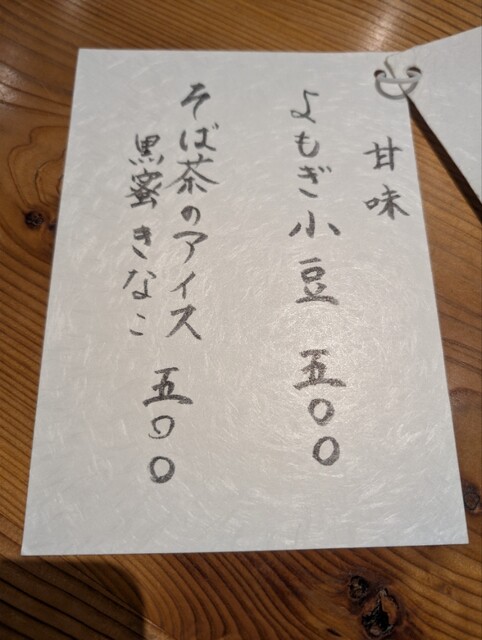 甘味
よもぎ小豆 五〇〇
そば茶のアイス 五〇〇
黒蜜きなこ